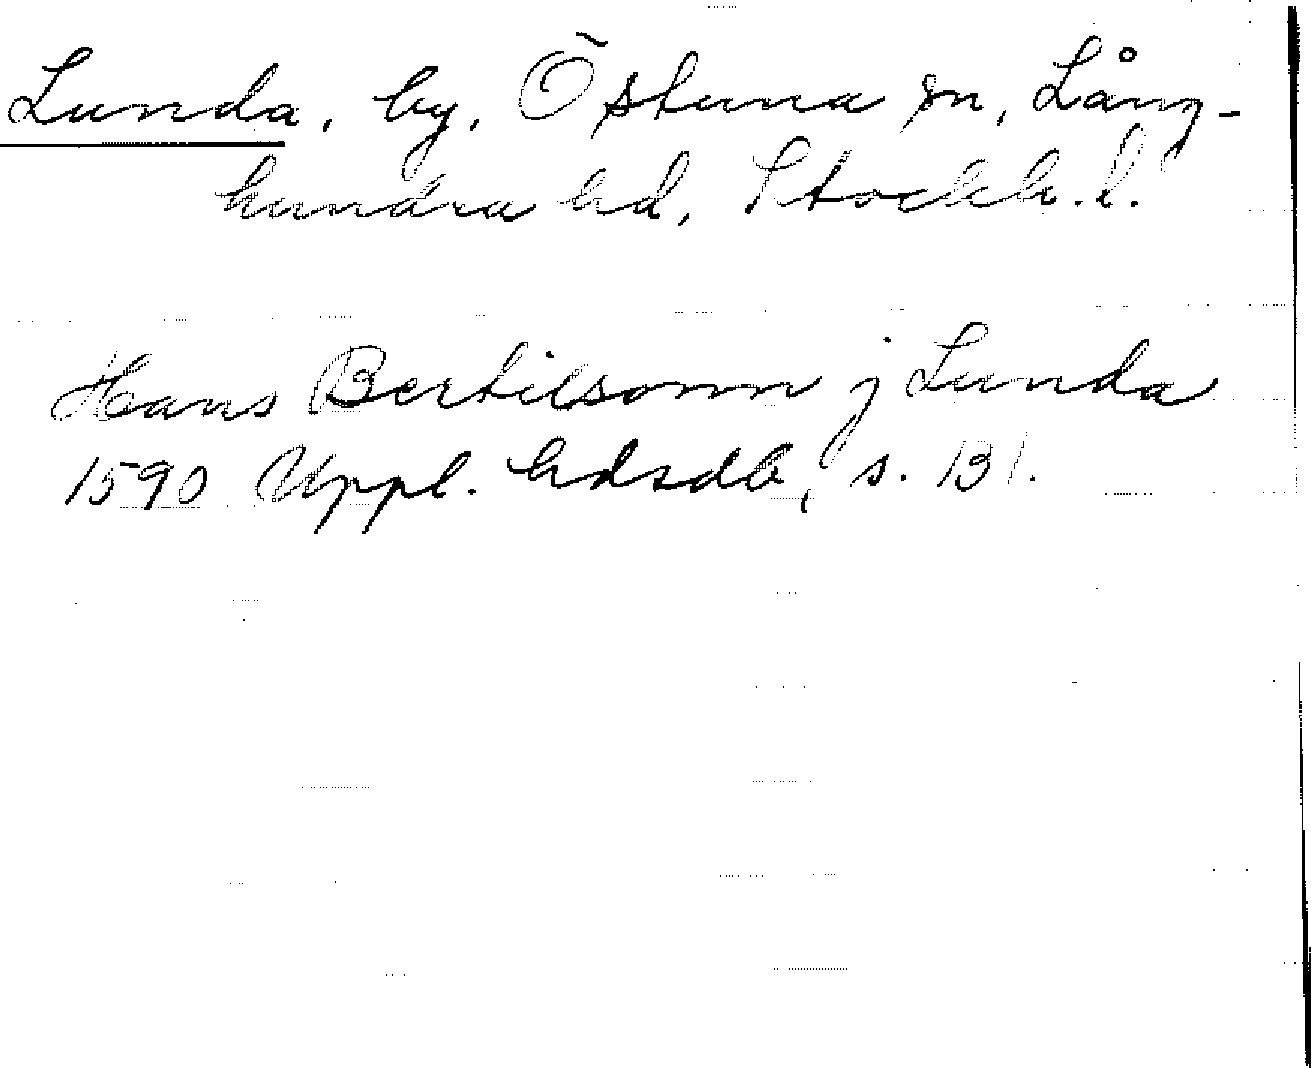 Lunda, by, Östuna sn, Lång-
hundra hd, Stockh. l.
Hans Bertilsonn j Lunda
1590 Uppl. hdsdb, s. 131.